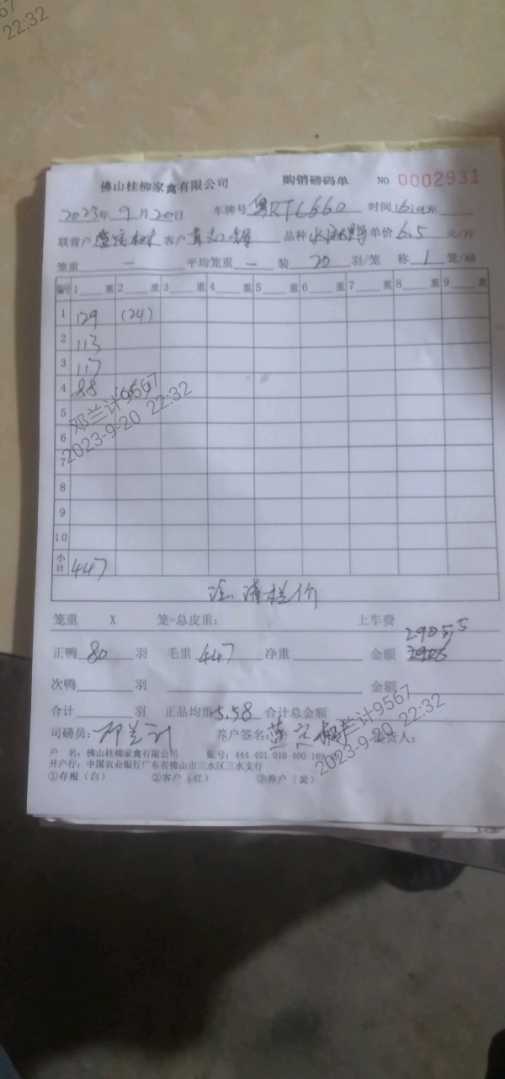 22:32
佛山桂柳家禽有限公司 购销磅码单 NO 0002931
2023年 9月20日 车牌号 粤RTL660 时间
联营户 客户 品种 单价6.5 元/斤
笼重 一 平均笼重 一 装 20 羽/笼 称 1 笼/磅
编号 1 重 2 重 3 重 4 重 5 重 6 重 7 重 8 重 9 重
1 129 (24)
2 113
3 117
4 88
5
邓兰计9567
6
2023-9-20 22:32
7
8
9
10
小计 447
注: 清栏价
笼重 X 笼=总皮重: 上车费
2905.5
正鸭 80 羽 毛重 447 净重 金额
次鸭 羽 金额
合计 羽 正品均重 5.58 合计总金额
邓兰计9567
2023-9-20 22:32
司磅员: 邓兰计 养户签名: 人:
户 名: 佛山桂柳家禽有限公司 账号:
开户行: 中国农业银行广东省佛山市三水区三水支行
①存根(白) ②客户(红) ③养户(黄)